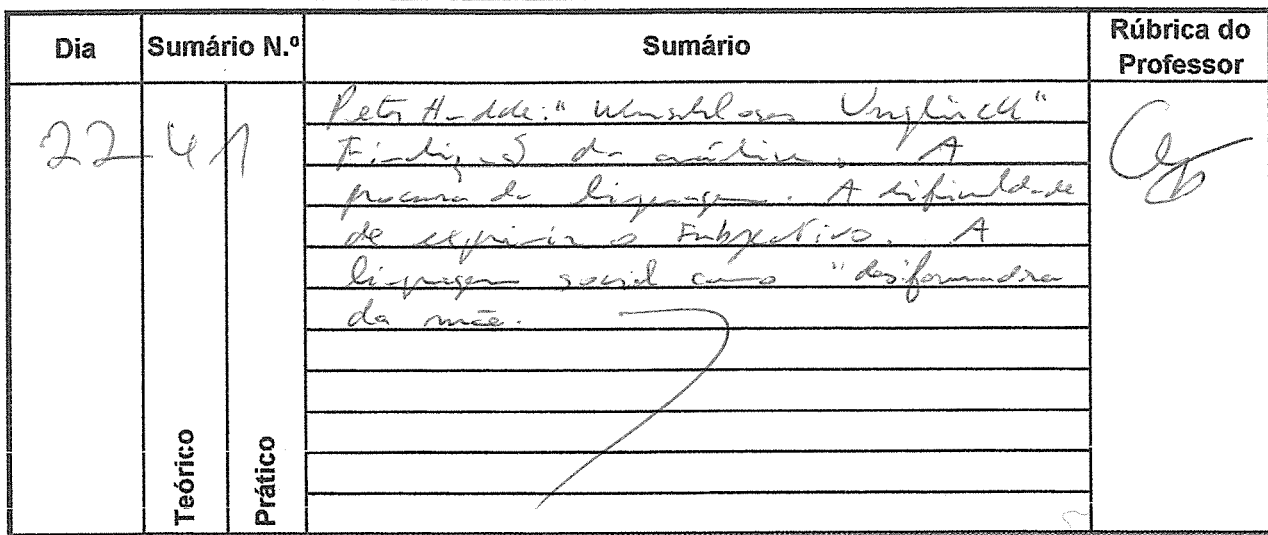 Dia Sumário N.º Sumário Rúbrica do Professor
22 41 Peter Handke: "Wunschloses Unglück"
Finalização da análise. A
procura da linguagem. A dificuldade
de exprimir o subjectivo. A
linguagem social como "desformadora
da mãe.
Teórico
Prático